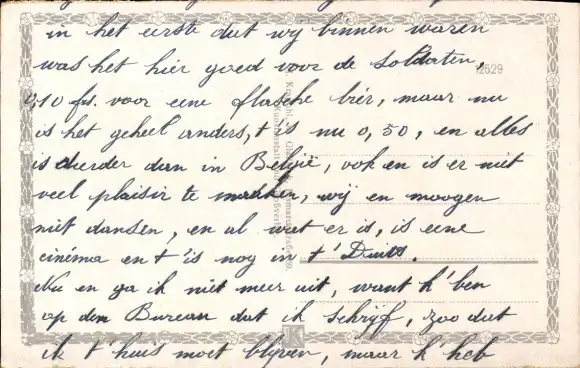 in het eerste dat wij binnen waren
was het hier goed voor de soldaten,
12629
0,10 fr. voor eene flassche bier, maar nu
is het geheel anders, t is nu 0,50, en alles
is dierder dan in België, ook en is er niet
veel plaisir te maaken, wij en moogen
niet dansen, en al wat er is, is eene
cinéma en t 'is nog in t' Duits.
Nu en ga ik niet meer uit, want k' ben
op den Bureau dat ik schrijf, zoo dat
ik t' huis moet blijven, maar k' heb
K